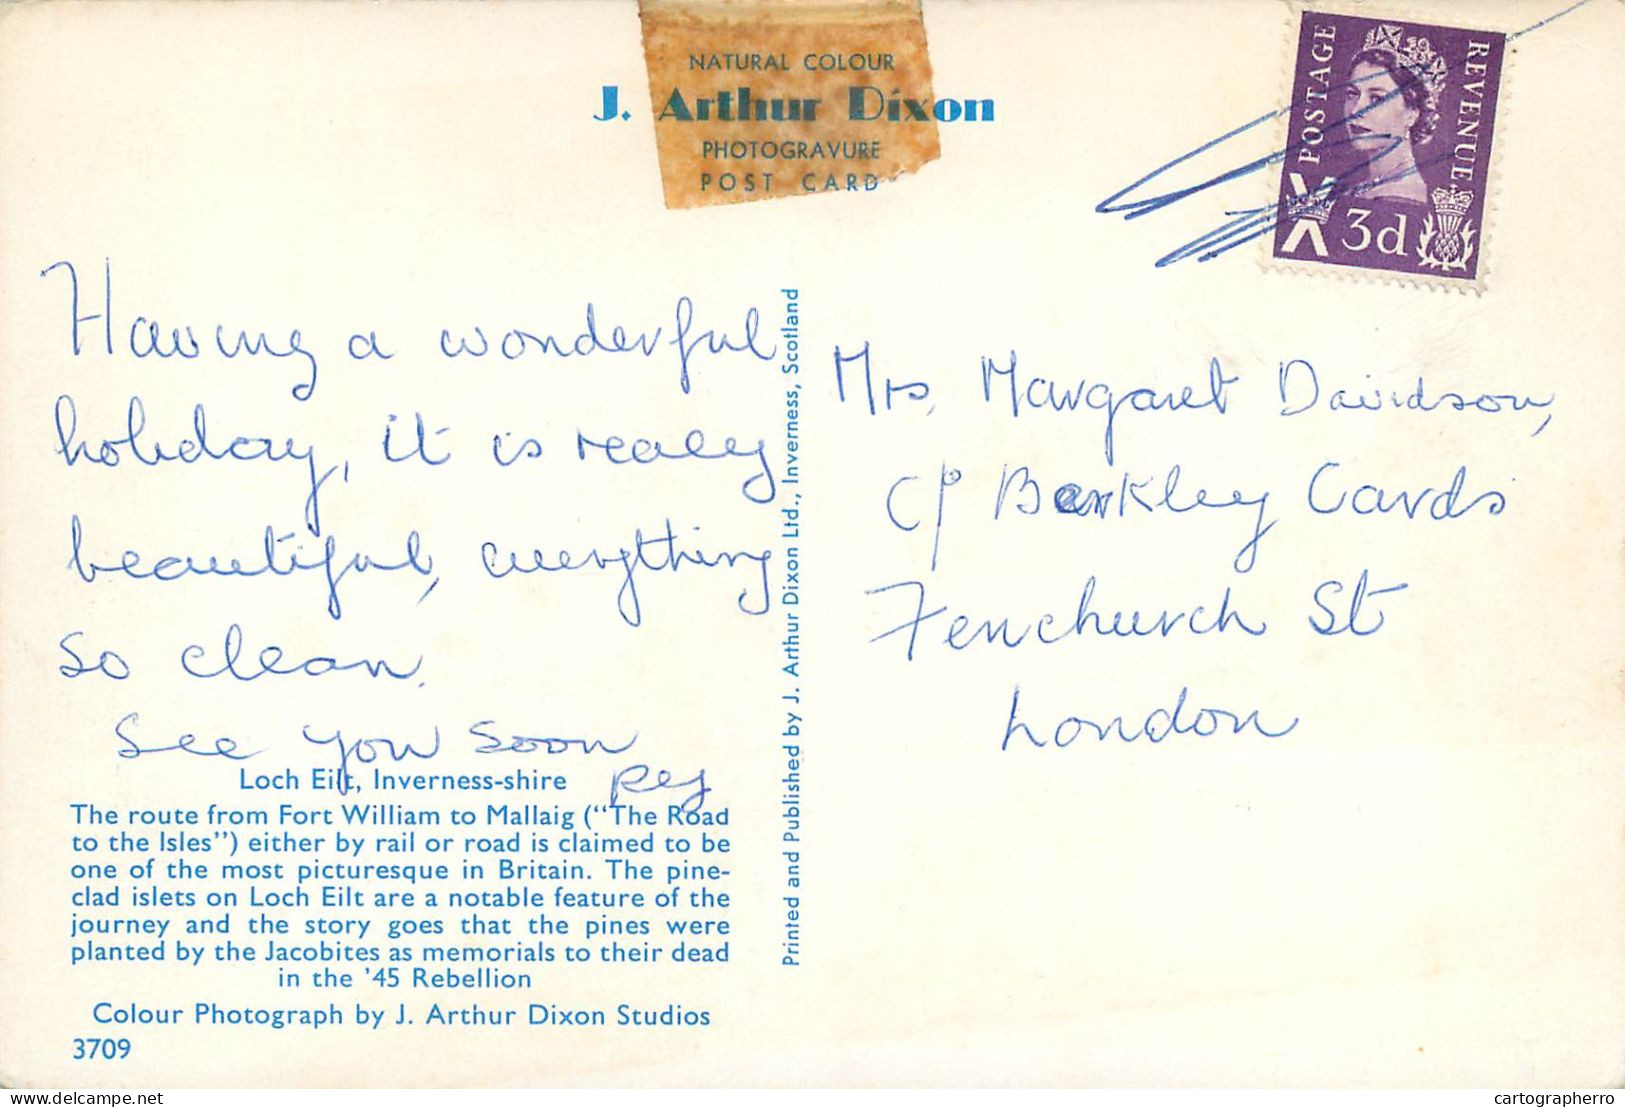 NATURAL COLOUR
J. Arthur Dixon
PHOTOGRAVURE
POST CARD
POSTAGE
REVENUE
3d
Having a wonderful
holiday, it is really
beautiful, everything
so clean.
See you soon
Loch Eilt, Inverness-shire
The route from Fort William to Mallaig (“The Road
to the Isles”) either by rail or road is claimed to be
one of the most picturesque in Britain. The pine-
clad islets on Loch Eilt are a notable feature of the
journey and the story goes that the pines were
planted by the Jacobites as memorials to their dead
in the '45 Rebellion
Colour Photograph by J. Arthur Dixon Studios
3709
Printed and Published by J. Arthur Dixon Ltd., Inverness, Scotland
Mrs. Margaret Davidson,
Barkley Cards
Fenchurch St
London
delcampe.net
cartographerro